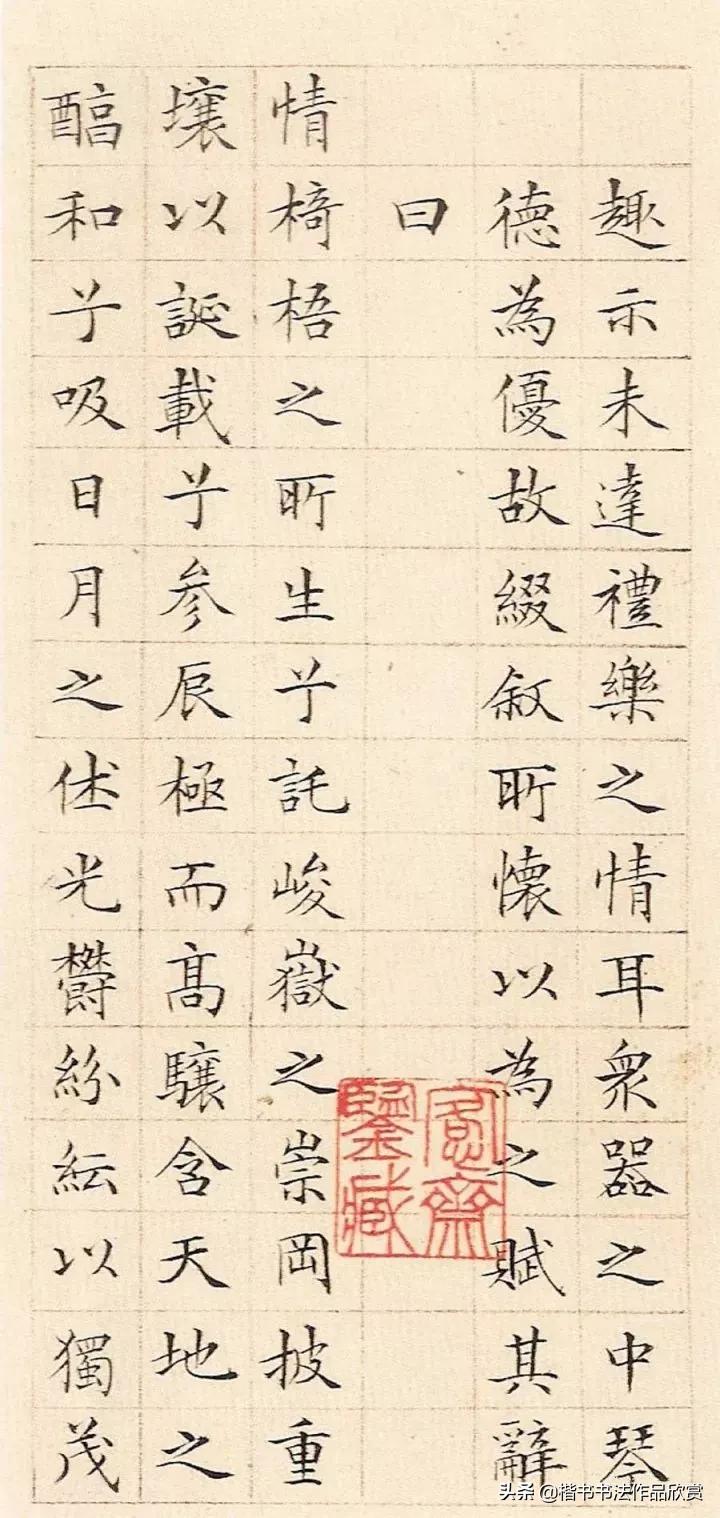 趣示未達禮樂之情耳衆器之中琴
德為優故綴叙所懷以為之賦其辭
曰
情椅梧之所生兮託峻嶽之崇岡披重
壤以誕載兮参辰極而髙驤含天地之
醇和兮吸日月之休光鬱紛紜以獨茂
愙齋鑒藏
头条 @楷书书法作品欣赏